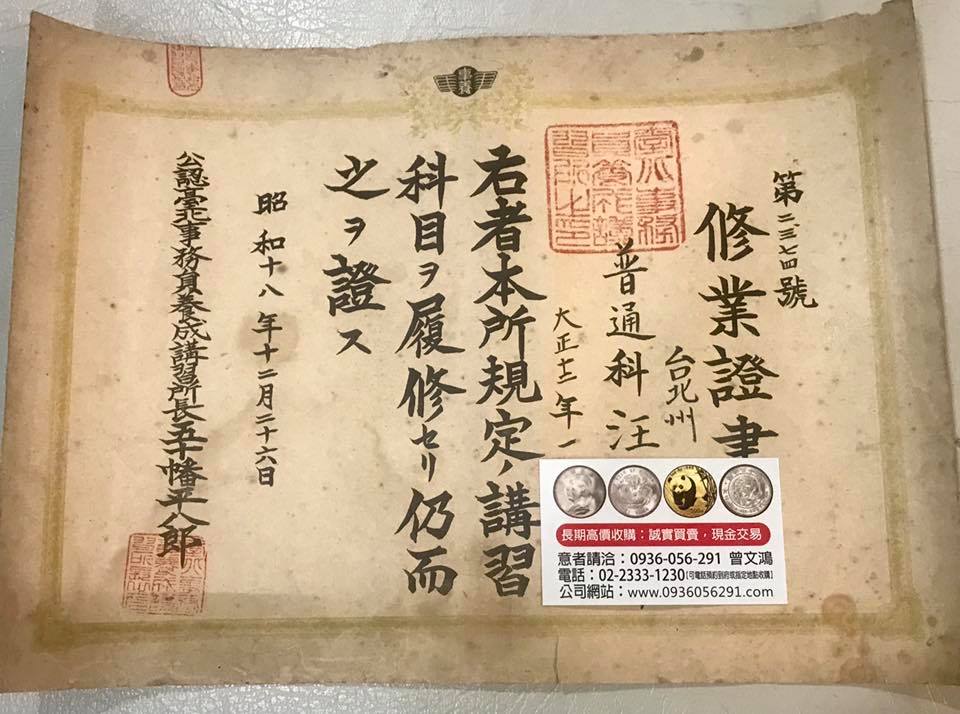 第二三七四號
修業證書
台北州
普通科 汪
大正十二年一
右者本所規定ノ講習
科目ヲ履修セリ仍而
之ヲ證ス
昭和十八年十二月二十六日
公認臺北事務員養成講習所長五十幡平八郎
長期高價收購：誠實買賣，現金交易
意者請洽：0936-056-291 曾文鴻
電話：02-2333-1230【可電話預約到府或指定地點收購】
公司網站：www.0936056291.com